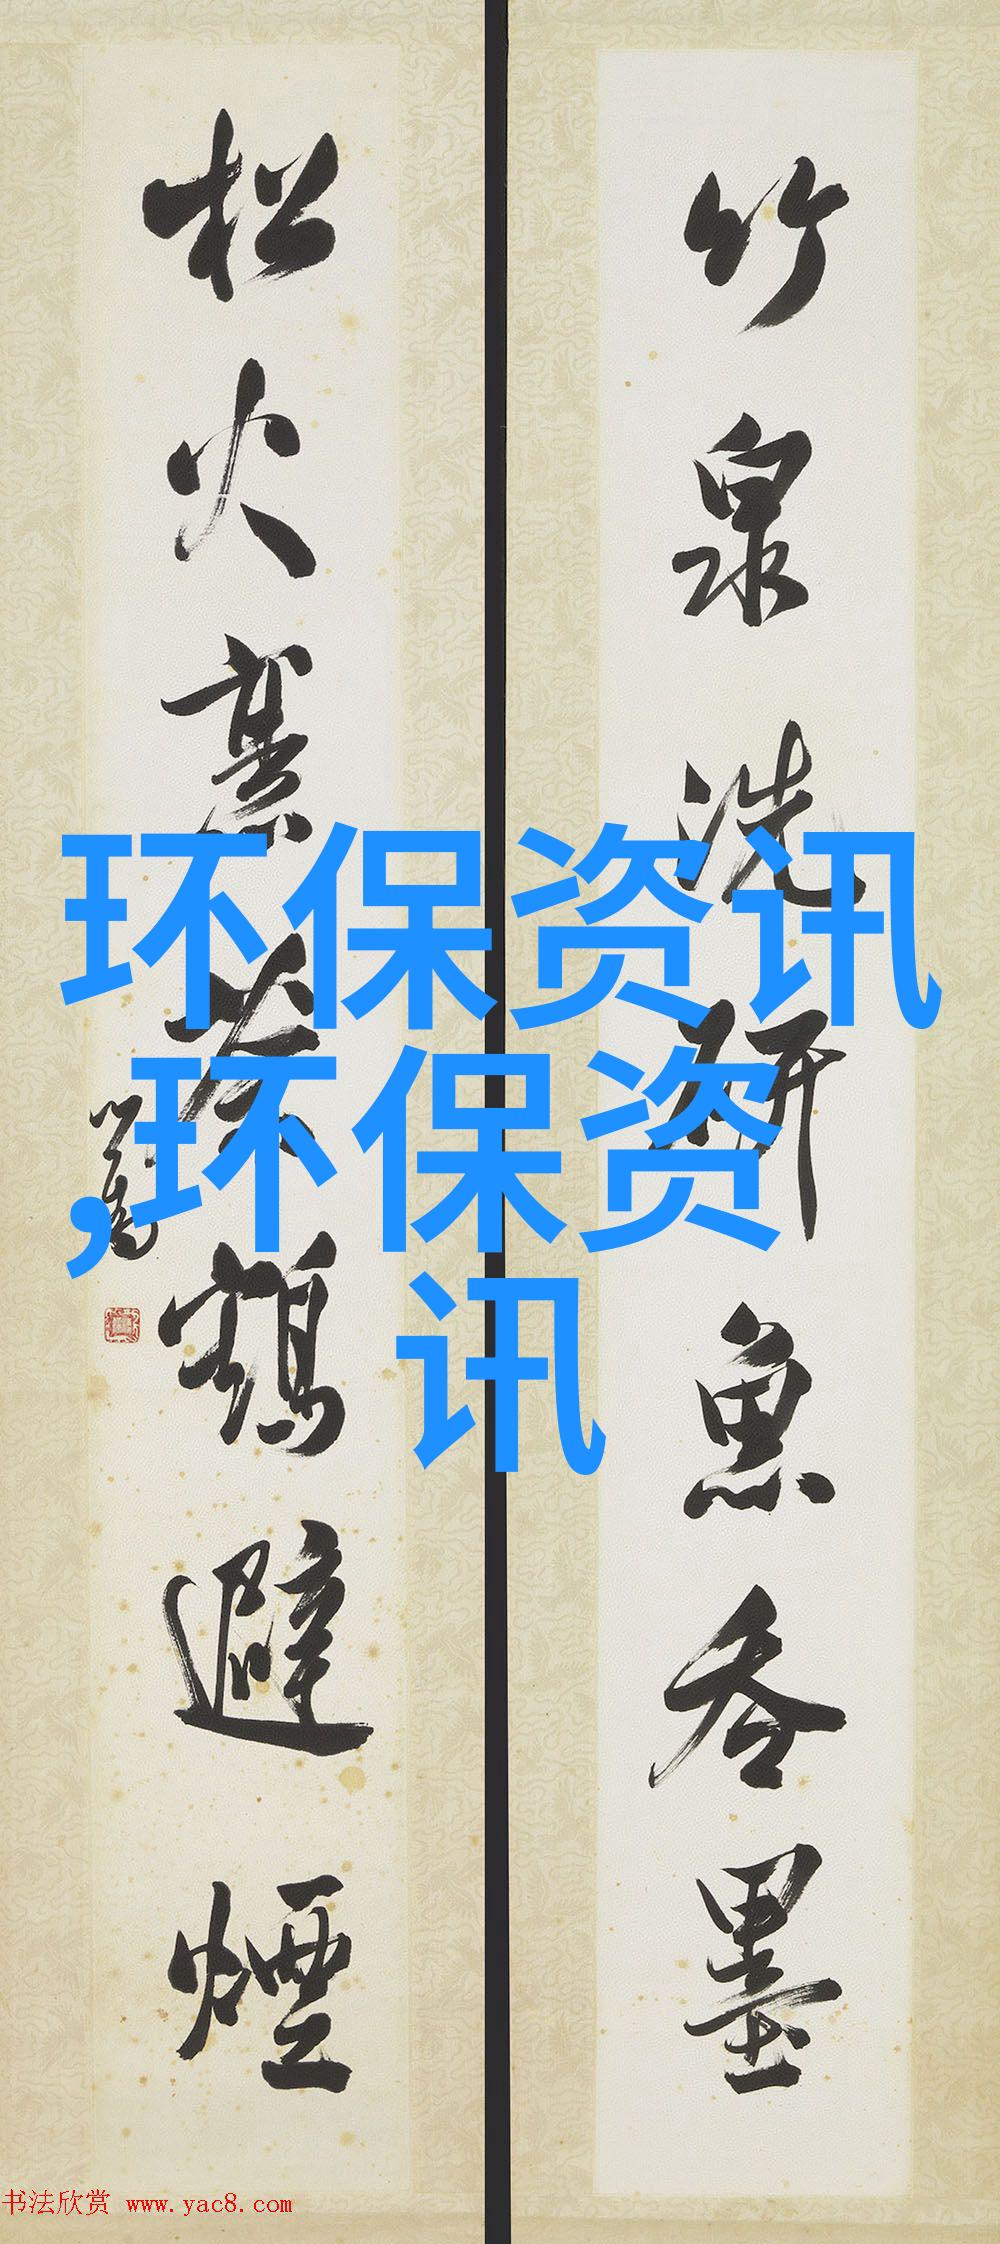 竹泉洗研魚吞墨
松火烹茶鶴避煙
环保资讯
,环保资
讯
书法欣赏 www.yac8.com